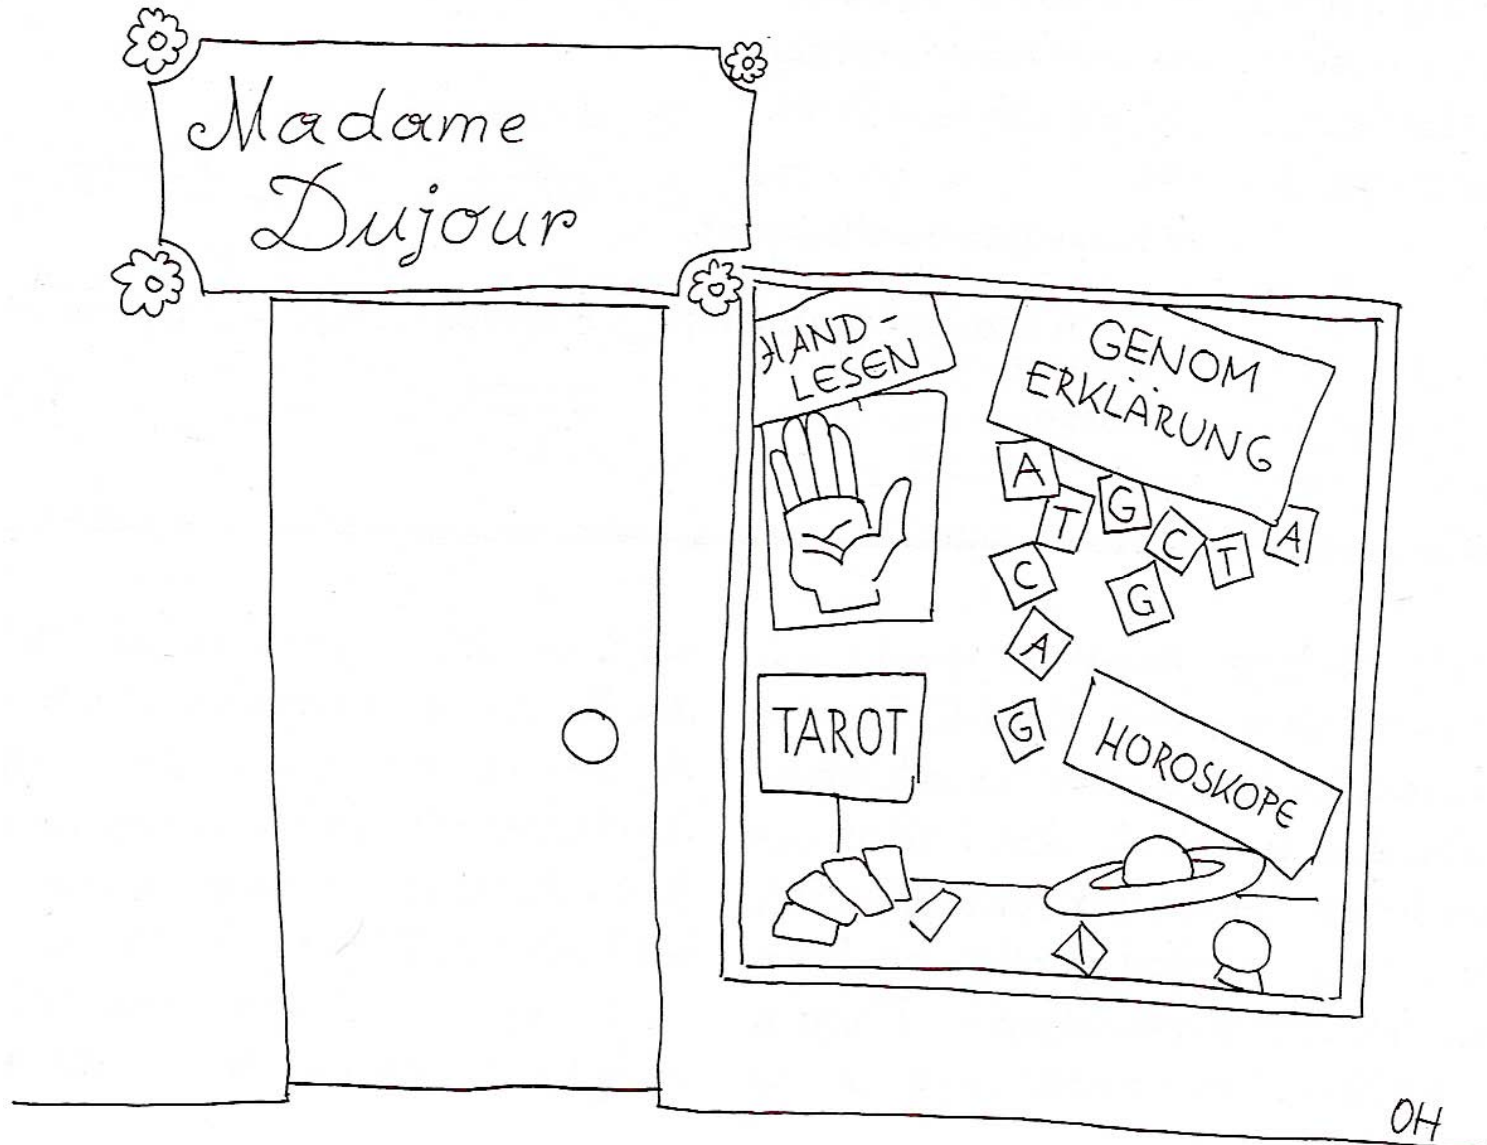 Madame
Dujour
HAND-
LESEN
GENOM
ERKLÄRUNG
A
T
G
C
T
A
C
G
A
G
TAROT
HOROSKOPE
OH